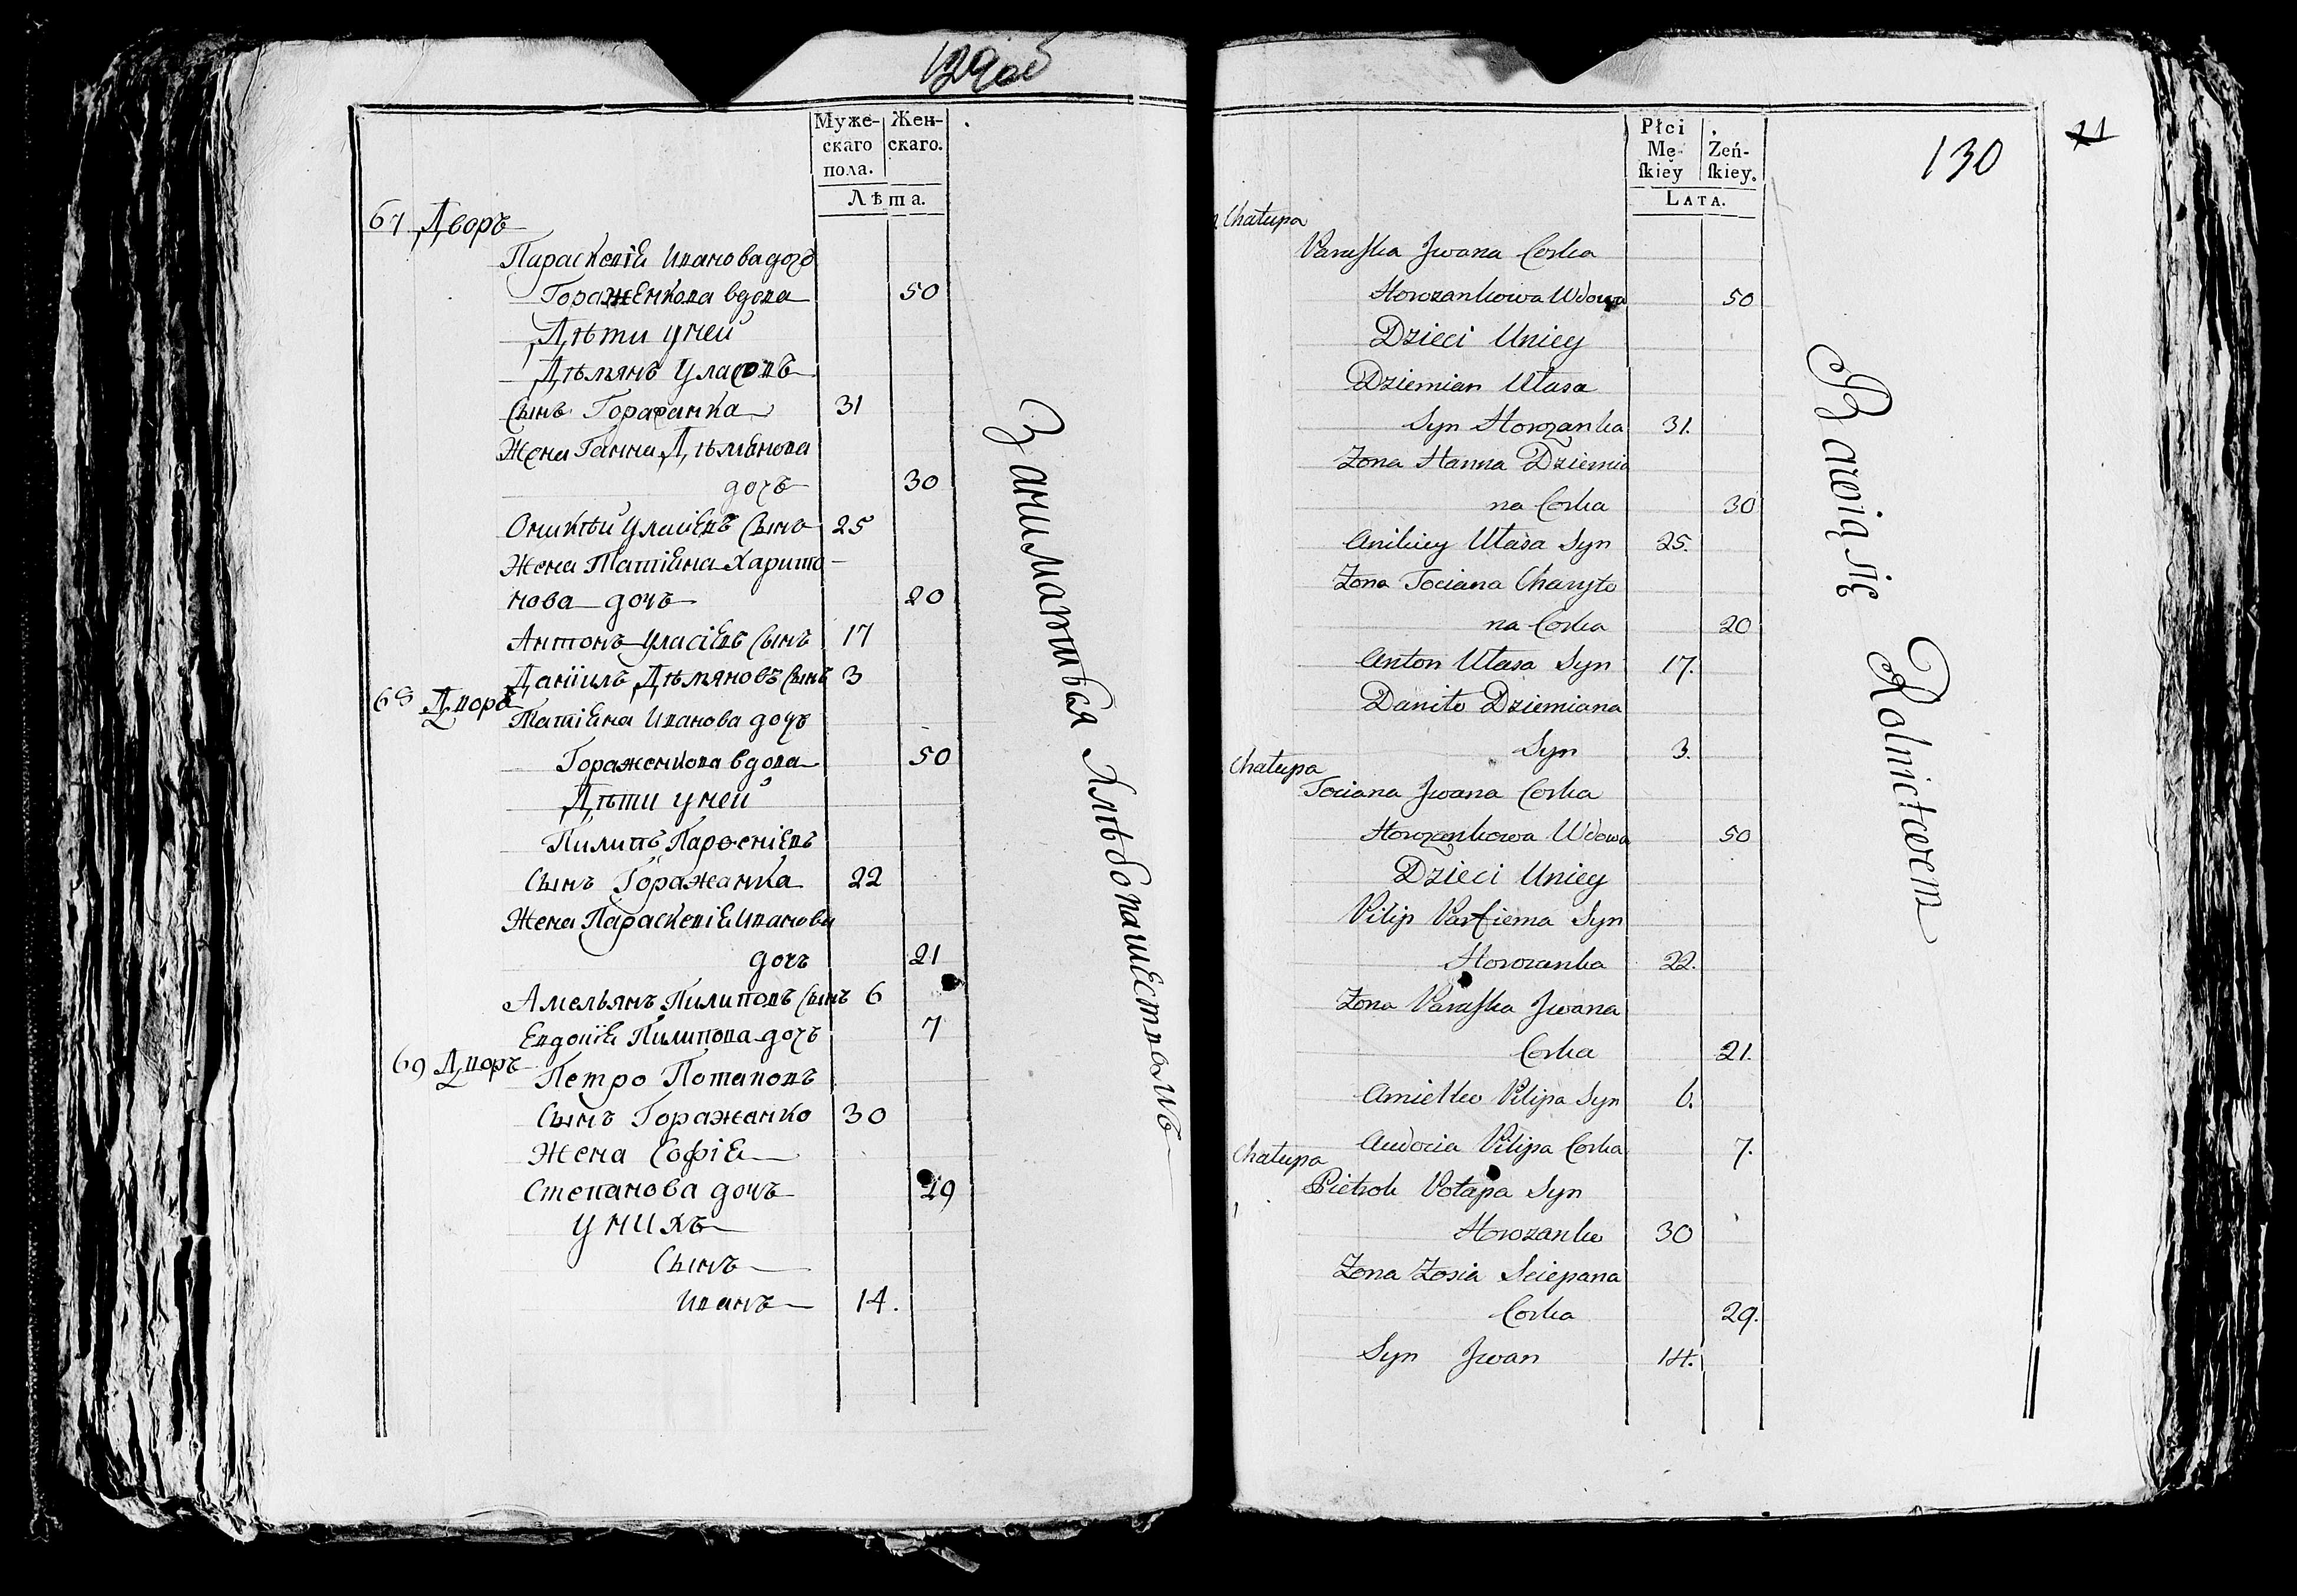 129об
Муже-
скаго
пола.
Жен-
скаго.
Лѣта.
67 Дворъ
Параскевіа Иванова дочь
Гораженкова вдова 50
Дѣти у ней
Дѣмянъ Уласовъ
Сынъ Горажанка 31
Жена Ганна Дѣмянова
дочь 30
Оникѣй Уласіевъ Сынъ 25
Жена Татіана Харито-
нова дочь 20
Антонъ Уласіевъ Сынъ 17
Даніилъ Дѣмяновъ Сынъ 3
68 Дворъ
Татіана Иванова дочь
Гораженкова вдова 50
Дѣти у ней
Пилипъ Парѳеніевъ
Сынъ Горажанка 22
Жена Параскевіа Иванова
дочь 21
Амельянъ Пилиповъ Сынъ 6
Евдокіа Пилипова дочь 7
69 Дворъ
Петро Потаповъ
Сынъ Горажанко 30
Жена Софіа
Степанова дочь 29
У нихъ
Сынъ
Иванъ 14.
Занимаються Хлѣбопашествомъ
130
21
Płci
Mę-
skiey
Żeń-
skiey.
Lata.
Chałupa
Paraska Jwana Corka
Horozankowa Wdowa 50
Dzieci Uniey
Dziemian Ułasa
Syn Horozanka 31.
Zona Hanna Dziemia
na Corka 30
Anikiey Ułasa Syn 25.
Zona Tociana Charyto
na Corka 20
Anton Ułasa Syn 17.
Daniło Dziemiana
Syn 3.
Chałupa
Tociana Jwana Corka
Horozankowa Wdowa 50
Dzieci Uniey
Pilip Parfiema Syn
Horozanka 22.
Zona Paraska Jwana
Corka 21.
Amielko Pilipa Syn 6.
Audocia Pilipa Corka 7.
Chałupa
Pietrok Potapa Syn
Horozanko 30
Zona Zosia Sciepana
Corka 29.
Syn Jwan 14.
Bawią się Rolnictwem